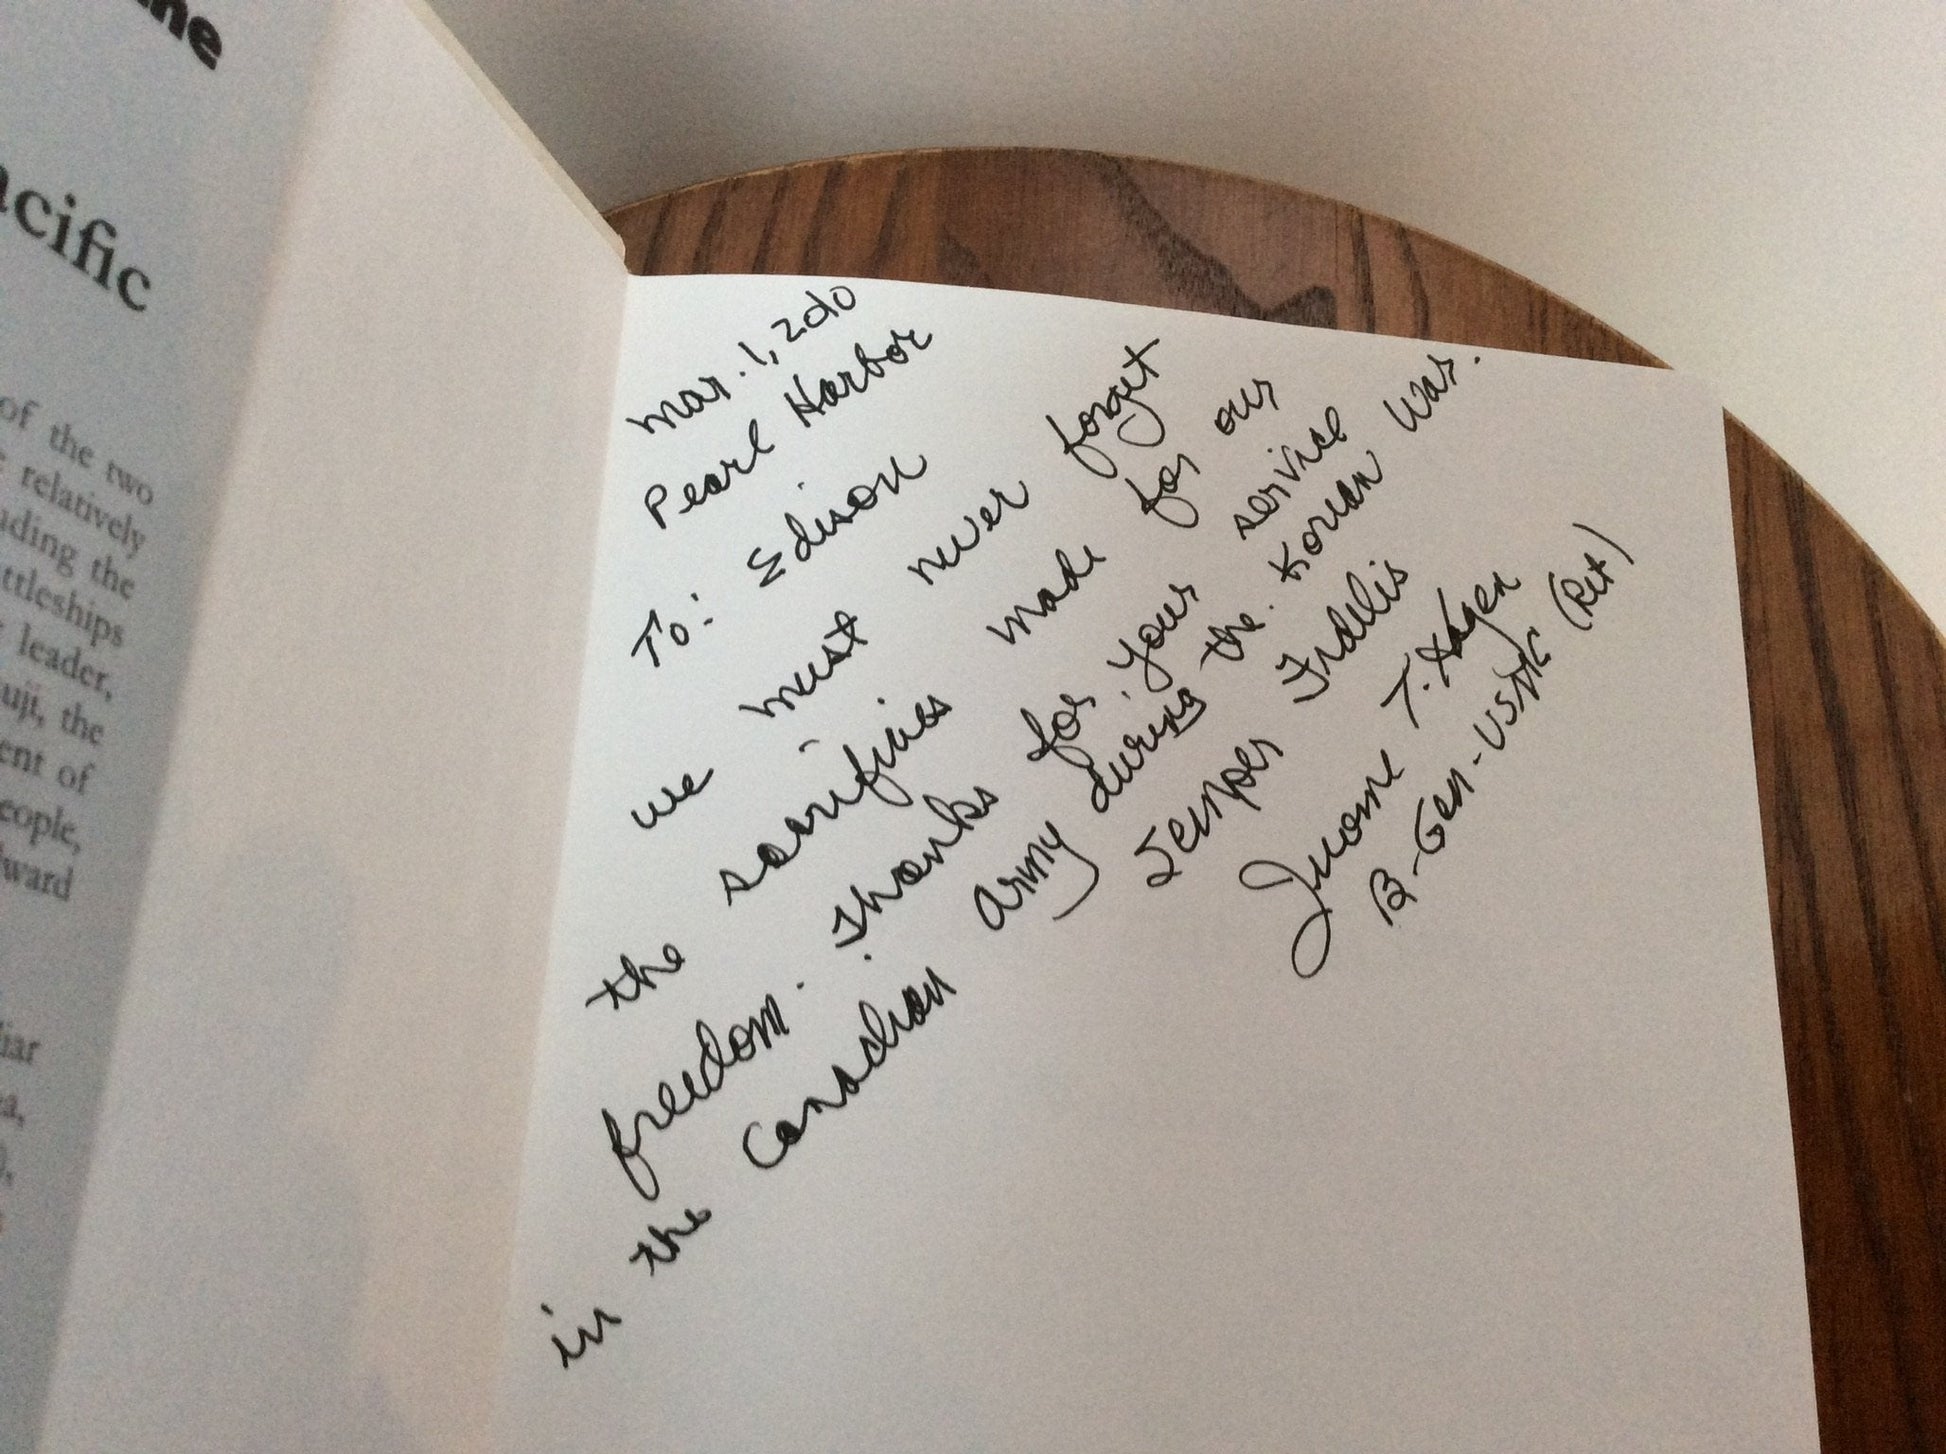 acific
of the two
relatively
the
ttleships
leader,
uji, the
ent of
eople,
ward
Mar. 1, 2010
Pearl Harbor
To: Edison
We must never forget
the sacrifices made for our
freedom. Thanks for your service
in the Canadian Army during the Korean War.
Semper Fidelis
Jerome T. Hagen
B-Gen-USMC (Ret)